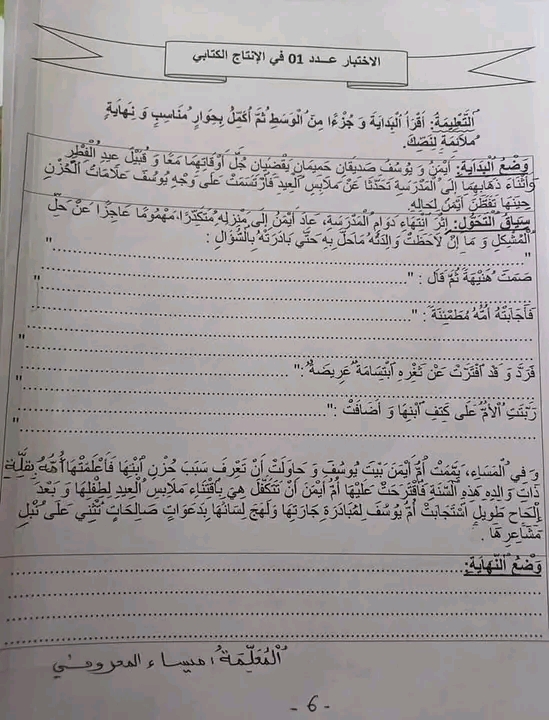 الاختبار عــدد 01 في الإنتاج الكتابي
اَلتَّعْلِيمَةُ: أَقْرَأُ اَلْبِدَايَةَ وَ جُزْءًا مِنَ اَلْوَسَطِ ثُمَّ أُكَمِّلُ بِحِوَارٍ مُنَاسِبٍ وَ نِهَايَةٍ
مُلَائِمَةٍ لِنَصِّكَ.
وَضْعُ اَلْبِدَايَةِ: أَيْمَنُ وَ يُوسُفُ صَدِيقَانِ حَمِيمَانِ يَقْضِيَانِ جُلَّ أَوْقَاتِهِمَا مَعًا وَ قُبَيْلَ عِيدِ اَلْفِطْرِ
وَأَثْنَاءَ ذَهَابِهِمَا إِلَى اَلْمَدْرَسَةِ تَحَدَّثَا عَنْ مَلَابِسِ اَلْعِيدِ فَارْتَسَمَتْ عَلَى وَجْهِ يُوسُفَ عَلَامَاتُ اَلْحُزْنِ
حِينَهَا تَفَطَّنَ أَيْمَنُ لِحَالِهِ.
سِيَاقُ اَلتَّحَوُّلِ: إِثْرَ اِنْتِهَاءِ دَوَامِ اَلْمَدْرَسَةِ، عَادَ أَيْمَنُ إِلَى مَنْزِلِهِ مُتَكَدِّرًا، مَهْمُومًا عَاجِزًا عَنْ حَلِّ
اَلْمُشْكِلِ وَ مَا إِنْ لَاحَظَتْ وَالِدَتُهُ مَاحَلَّ بِهِ حَتَّى بَادَرَتْهُ بِالسُّؤَالِ : "
صَمَتَ هُنَيْهَةً ثُمَّ قَالَ : "
فَأَجَابَتْهُ أُمُّهُ مُطَمْئِنَةً : "
فَرَدَّ وَ قَدِ اَفْتَرَّتْ عَنْ ثَغْرِهِ اَبْتِسَامَةٌ عَرِيضَةٌ: "
رَبَّتَتِ اَلْأُمُّ عَلَى كَتِفِ اَبْنِهَا وَ أَضَافَتْ :"
وَ فِي اَلْمَسَاءِ، يَمَّمَتْ أُمُّ أَيْمَنَ بَيْتَ يُوسُفَ وَ حَاوَلَتْ أَنْ تَعْرِفَ سَبَبَ حُزْنِ اَبْنِهَا فَأَعْلَمَتْهَا أُمُّهُ بِقِلَّةِ
ذَاتِ وَالِدِهِ هَذِهِ اَلسَّنَةَ فَاُقْتَرَحَتْ عَلَيْهَا أُمُّ أَيْمَنَ أَنْ تَتَكَفَّلَ هِيَ بِاُقْتِنَاءِ مَلَابِسِ اَلْعِيدِ لِطِفْلِهَا وَ بَعْدَ
إِلْحَاحٍ طَوِيلٍ اَسْتَجَابَتْ أُمُّ يُوسُفَ لِمُبَادَرَةِ جَارَتِهَا وَلَهِجَ لِسَانُهَا بِدَعَوَاتٍ صَالِحَاتٍ تُثْنِي عَلَى نُبْلِ
مَشَاعِرِهَا .
وَضْعُ اَلنِّهَايَةِ:
اَلْمُعَلِّمَةُ: ميساء المعروفي
- 6 -